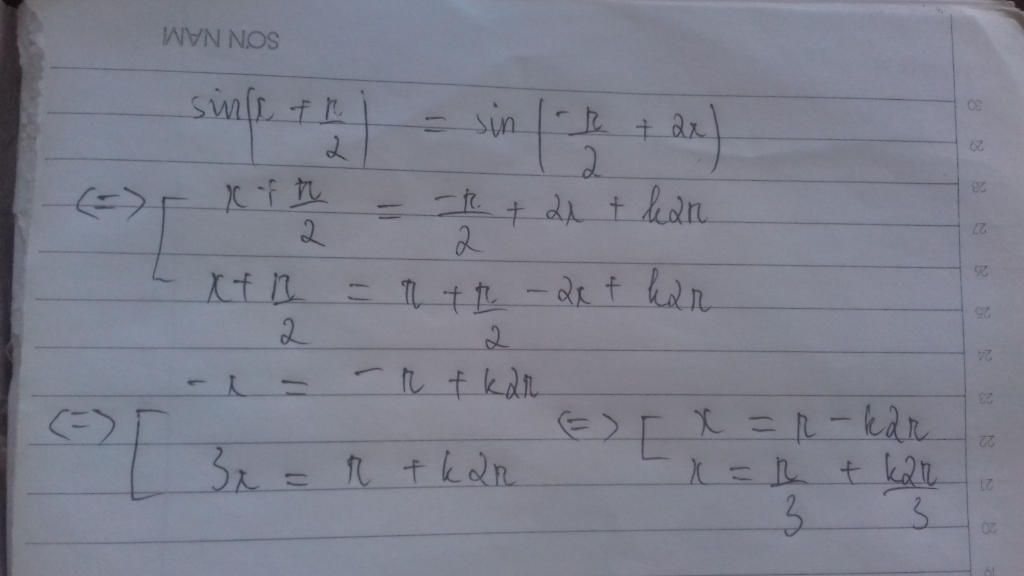 SƠN NAM
sin(x + π/2) = sin(-π/2 + 2x)
(=) [ x + π/2 = -π/2 + 2x + k2π
x + π/2 = π + π/2 - 2x + k2π
-x = -π + k2π
(=) [ 3x = π + k2π (=) [ x = π - k2π
x = π/3 + k2π/3
30
29
28
27
26
25
24
23
22
21
20